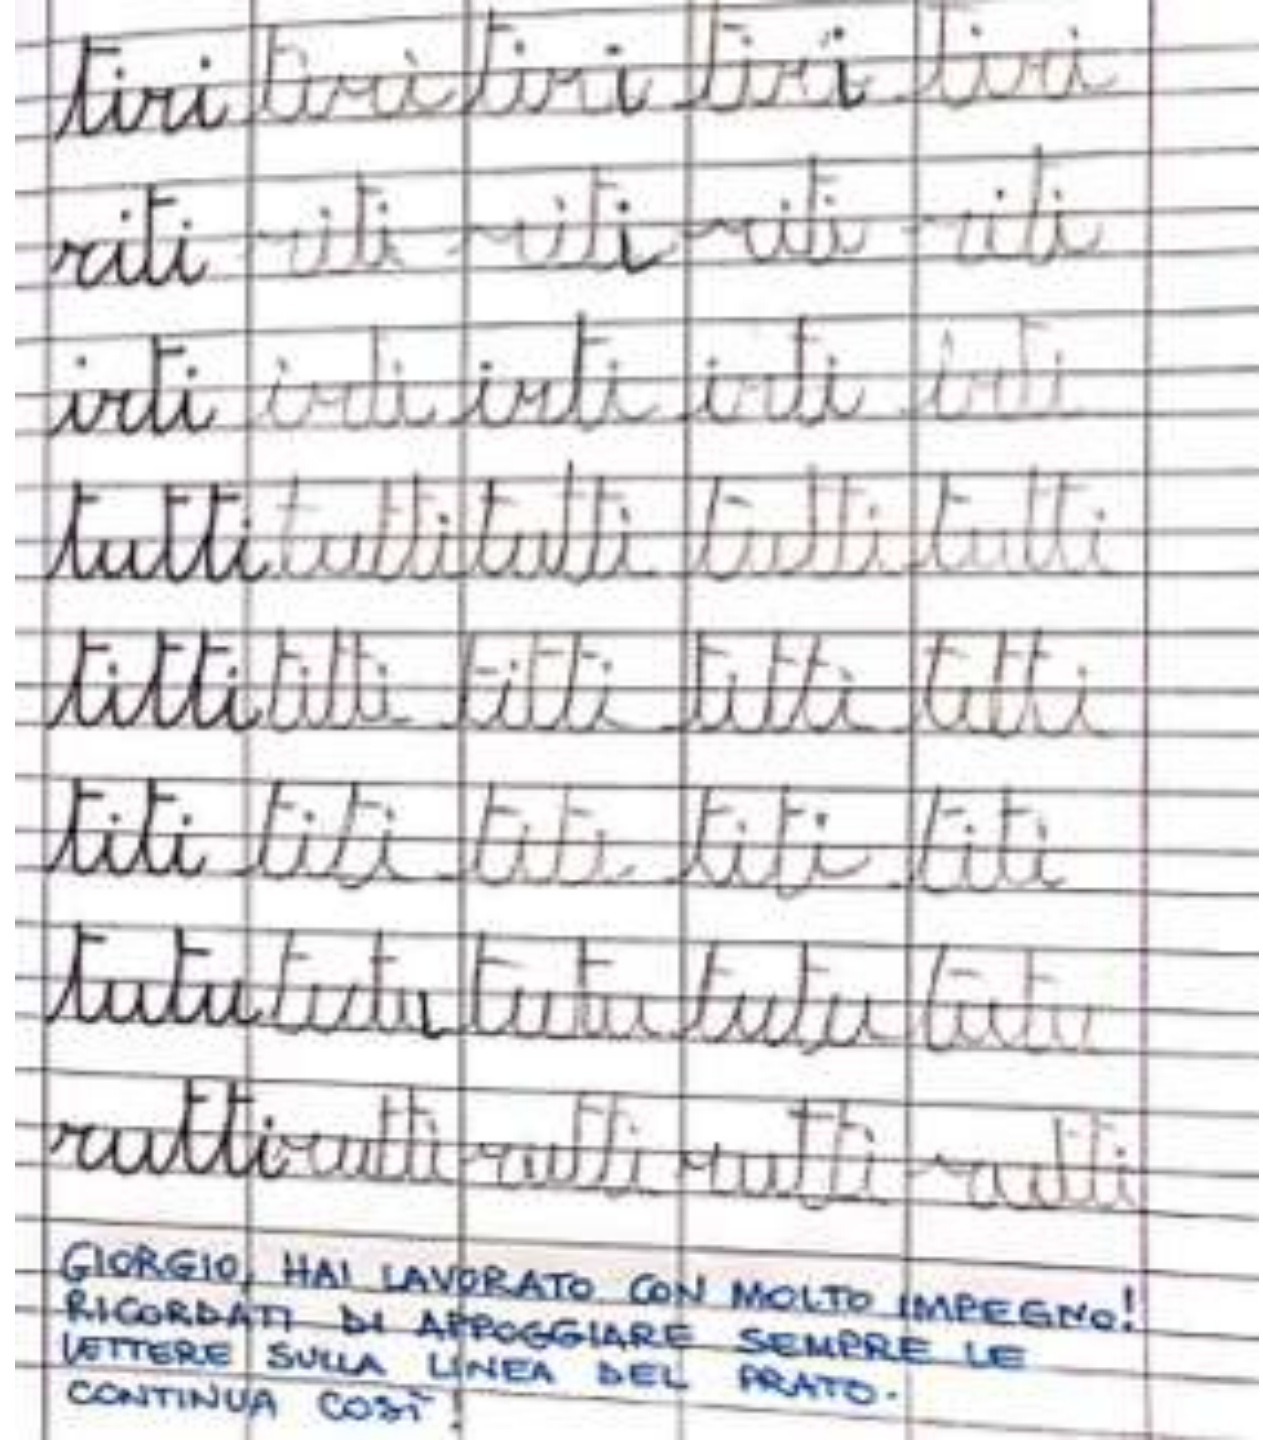 tiri tiri tiri tiri tiri
riti riti riti riti riti
irti irti irti irti irti
tutti tutti tutti tutti tutti
titti titti titti titti titti
titi titi titi titi titi
tutu tutu tutu tutu tutu
rutti rutti rutti rutti rutti
GIORGIO, HAI LAVORATO CON MOLTO IMPEGNO!
RICORDATI DI APPOGGIARE SEMPRE LE
LETTERE SULLA LINEA DEL PRATO.
CONTINUA COSÌ!